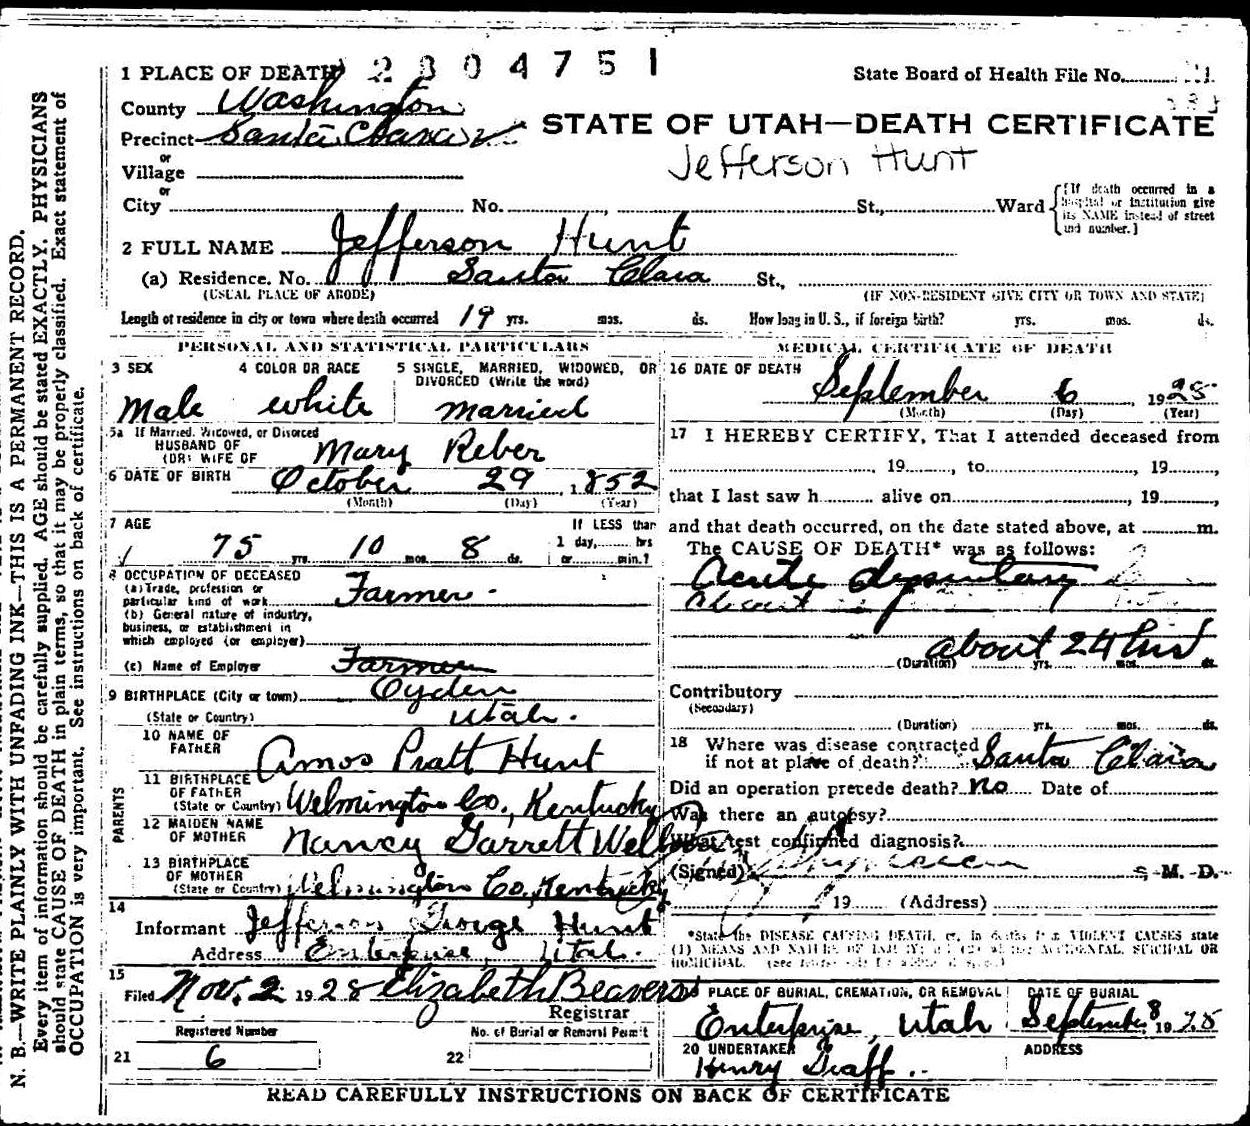 1 PLACE OF DEATH 2304751
State Board of Health File No.
County Washington
Precinct Santa
STATE OF UTAH—DEATH CERTIFICATE
Jefferson Hunt
or
Village
or
City No. , St., Ward
{[If death occurred in a
hospital or institution give
its NAME instead of street
and number.]
2 FULL NAME Jefferson Hunt
(a) Residence. No. Santa Clara St.,
(USUAL PLACE OF ABODE) (IF NON-RESIDENT GIVE CITY OR TOWN AND STATE)
Length of residence in city or town where death occurred 19 yrs. mos. ds. How long in U. S., if foreign birth? yrs. mos. ds.
PERSONAL AND STATISTICAL PARTICULARS
3 SEX 4 COLOR OR RACE 5 SINGLE, MARRIED, WIDOWED, OR
DIVORCED (Write the word)
Male white married
5a If Married, Widowed, or Divorced
HUSBAND OF
(OR) WIFE OF Mary Reber
6 DATE OF BIRTH October 29 , 1852
(Month) (Day) (Year)
7 AGE If LESS than
1 day, hrs
75 yrs. 10 mos. 8 ds. or min.?
8 OCCUPATION OF DECEASED
(a) Trade, profession or
particular kind of work Farmer.
(b) General nature of industry,
business, or establishment in
which employed (or employer)
(c) Name of Employer Farmer
9 BIRTHPLACE (City or town) Ogden
(State or Country) Utah.
PARENTS
10 NAME OF
FATHER Amos Pratt Hunt
11 BIRTHPLACE
OF FATHER
(State or Country) Welmington Co., Kentucky
12 MAIDEN NAME
OF MOTHER Nancy Garrett
13 BIRTHPLACE
OF MOTHER
(State or Country) Welmington Co., Kentucky
14
Informant Jefferson George Hunt
Address Enterprise, Utah.
15
Filed Nov. 2 1928 Elizabeth Beavers
Registrar
Registered Number No. of Burial or Removal Permit
21 6 22
MEDICAL CERTIFICATE OF DEATH
16 DATE OF DEATH
September 6 , 1928
(Month) (Day) (Year)
17 I HEREBY CERTIFY, That I attended deceased from
, 19 , to , 19 ,
that I last saw h alive on , 19 ,
and that death occurred, on the date stated above, at m.
The CAUSE OF DEATH* was as follows:
Acute dysentary
about 24 hrs
(Duration) yrs. mos. ds.
Contributory
(Secondary)
(Duration) yrs. mos. ds.
18 Where was disease contracted
if not at place of death? Santa Clara
Did an operation precede death? No Date of
Was there an autopsy?
What test confirmed diagnosis?
(Signed) , M. D.
, 19 (Address)
*State the DISEASE CAUSING DEATH, or, in deaths from VIOLENT CAUSES state
(1) MEANS AND NATURE OF INJURY; and (2) whether ACCIDENTAL, SUICIDAL OR
HOMICIDAL.
PLACE OF BURIAL, CREMATION, OR REMOVAL DATE OF BURIAL
Enterprise, Utah September 8 1928
20 UNDERTAKER ADDRESS
Henry Graff
READ CAREFULLY INSTRUCTIONS ON BACK OF CERTIFICATE
N. B.—WRITE PLAINLY WITH UNFADING INK—THIS IS A PERMANENT RECORD.
Every item of information should be carefully supplied. AGE should be stated EXACTLY. PHYSICIANS
should state CAUSE OF DEATH in plain terms, so that it may be properly classified. Exact statement of
OCCUPATION is very important. See instructions on back of certificate.